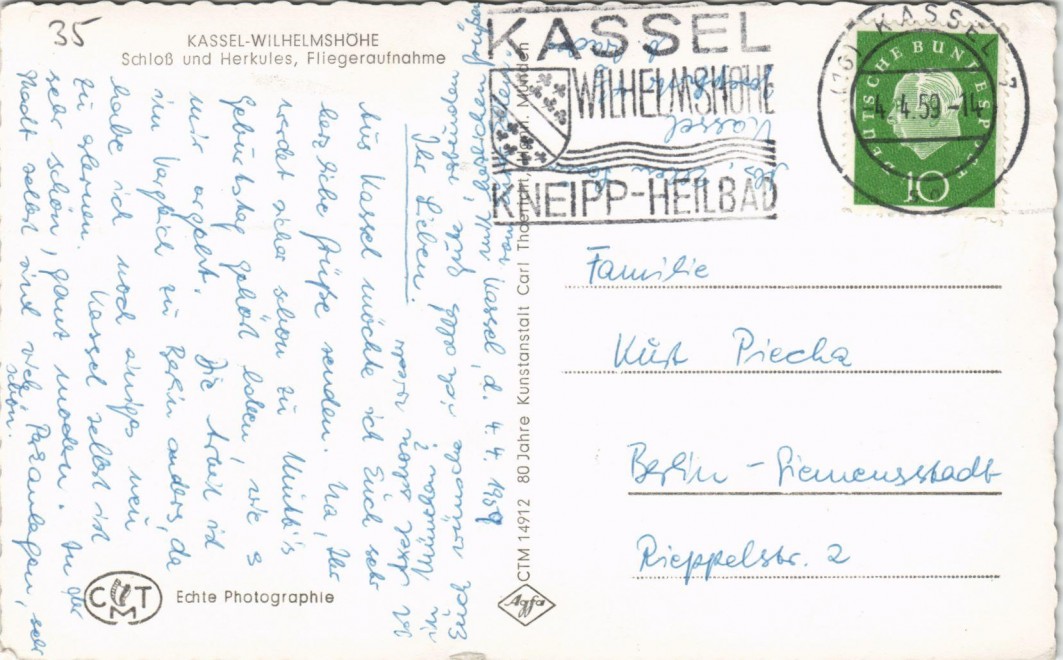 35
KASSEL-WILHELMSHÖHE
Schloß und Herkules, Fliegeraufnahme
Kassel, d. 4. 4. 1959
Ihr Lieben!
Aus Kassel möchte ich Euch sehr
herzliche Grüße senden. Na, Ihr
werdet sicher schon zu Mutti's
Geburtstag gehört haben, wie es
mir ergeht. Die Arbeit ist
im Vergleich zu Berlin anders, da
habe ich noch einiges neu
zu erlernen. Kassel selbst ist
sehr schön, ganz modern. In der
Stadt selbst sind viele Parkanlagen, sehr
schön.
Euch wünsche ich alles Gute
Ist Axel noch immer
in München?
KASSEL
WILHELMSHÖHE
KNEIPP-HEILBAD
(16) KASSEL
-4.4.59-14
DEUTSCHE BUNDESPOST
10
Familie
Kurt Piecha
Berlin - Siemensstadt
Rieppelstr. 2
CTM 14912 80 Jahre Kunstanstalt Carl Thoericht, Hann. Münden
Agfa
CMT
Echte Photographie